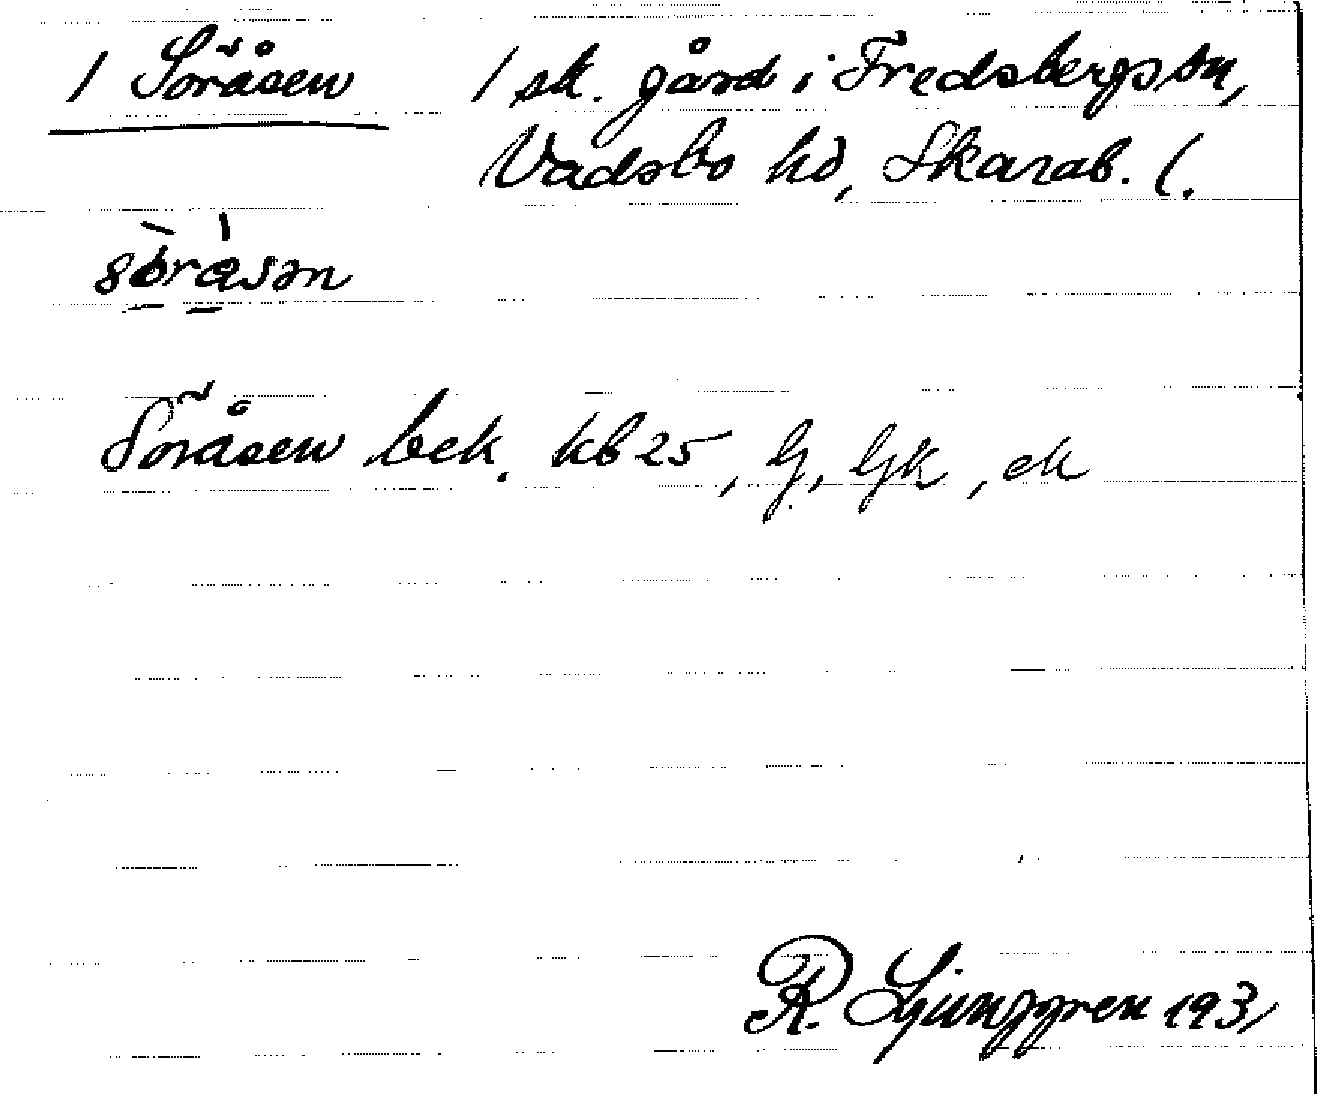 / Söråsen / sk. gård i Fredsbergs sn,
Vadsbo hd, Skarab. l.
sò̱rå̱sən
Söråsen bek. kb 25, G, Gk, ek
R. Ljunggren 1931